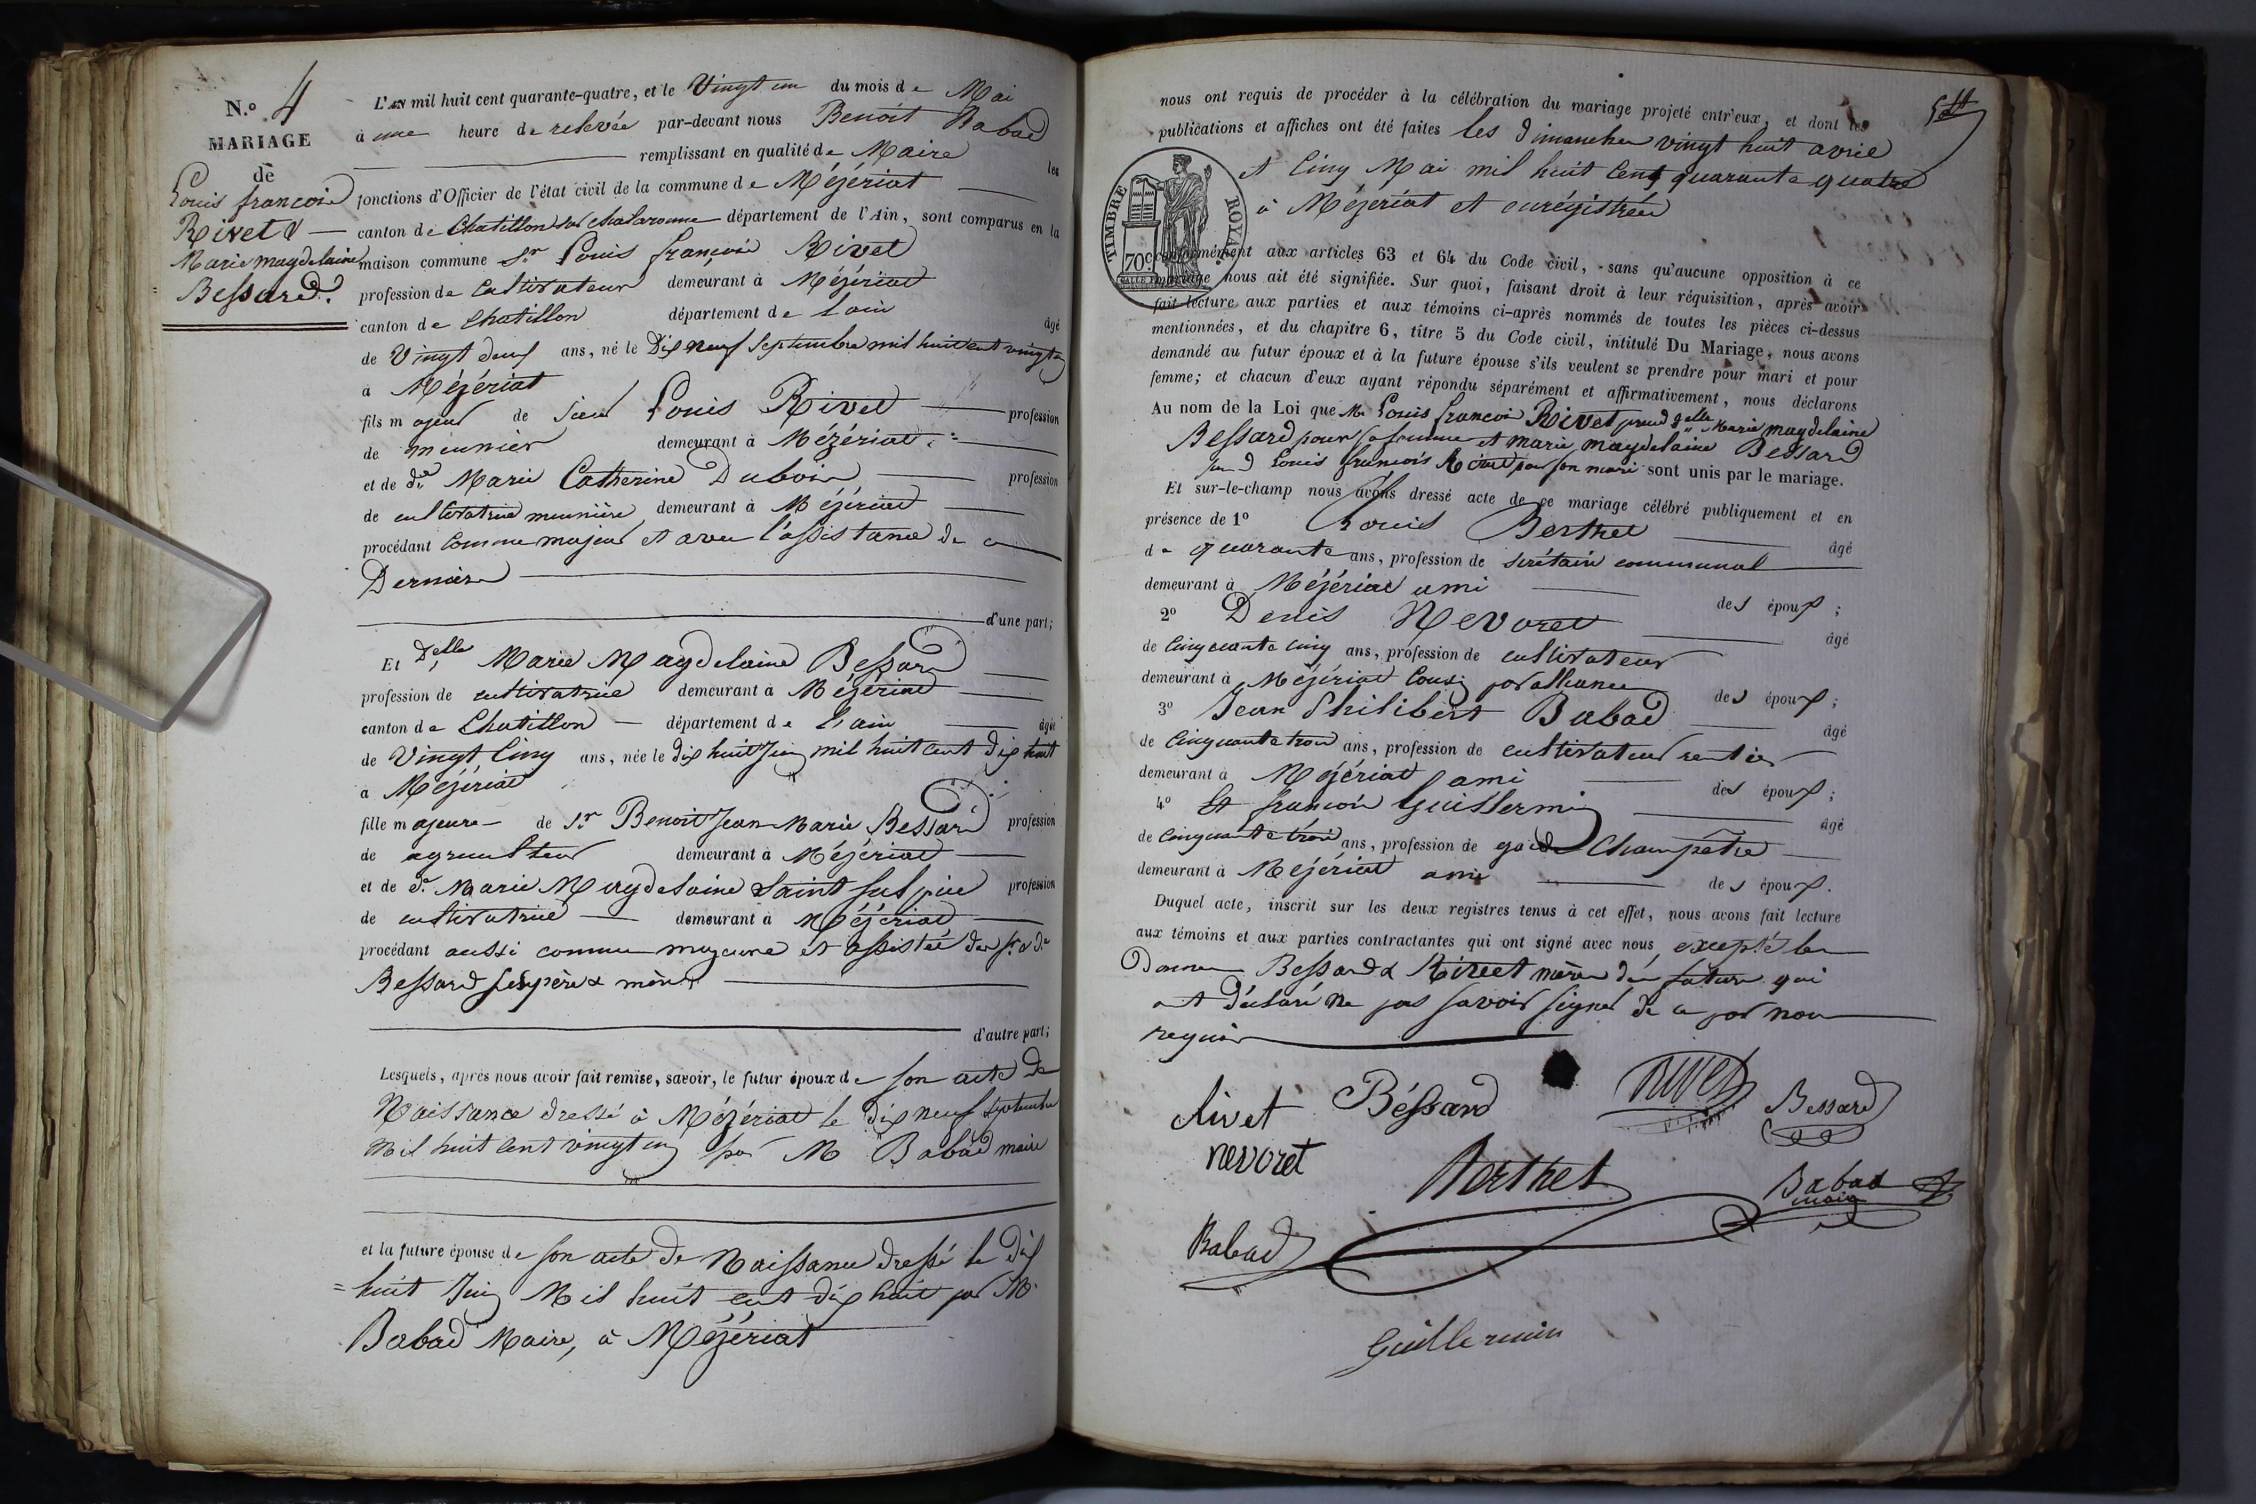 N.o 4
MARIAGE
de
Louis françois
Rivet &
Marie magdelaine
Bessard.
L'AN mil huit cent quarante-quatre, et le Vingt un du mois de Mai
à une heure de relevée par-devant nous Benoit Babad
remplissant en qualité de Maire les
fonctions d'Officier de l'état civil de la commune de Mézériat
canton de Chatillon sur chalaronne département de l'Ain, sont comparus en la
maison commune Sr Louis françois Rivet
profession de Cultivateur demeurant à Mézériat
canton de Chatillon département de Lain âgé
de Vingt deux ans, né le Dix neuf Septembre mil huit cent vingt un
à Mézériat
fils majeur de Sieur Louis Rivet profession
de meunier demeurant à Mézériat
et de de Marie Catherine Dubois profession
de cultivatrice meunière demeurant à Mézériat
procédant comme majeur et avec l'assistance de ce
Dernier
d'une part;
Et Delle Marie Magdelaine Bessard
profession de cultivatrice demeurant à Mézériat
canton de Chatillon département de L'ain âgée
de Vingt Cinq ans, née le dix huit Juin mil huit cent dix huit
à Mézériat
fille majeure de Sr Benoit Jean Marie Bessard profession
de agriculteur demeurant à Mézériat
et de de Marie Magdelaine Saint Sulpice profession
de cultivatrice demeurant à Mézériat
procédant aussi comme majeure et assistée des Sr & De
Bessard ses père & mère
d'autre part;
Lesquels, après nous avoir fait remise, savoir, le futur époux de son acte de
Naissance dressé à Mézériat le dix neuf septembre
mil huit cent vingt un par M Babad maire
et la future épouse de son acte de Naissance dressé le dix
huit Juin Mil huit cent dix huit par M.
Babad Maire, à Mézériat
nous ont requis de procéder à la célébration du mariage projeté entr'eux, et dont les
publications et affiches ont été faites les dimanches vingt huit avril
et Cinq Mai mil huit Cent quarante quatre
à Mézériat et enrégistrées
TIMBRE ROYAL
70c
conformément aux articles 63 et 64 du Code civil, sans qu'aucune opposition à ce
mariage nous ait été signifiée. Sur quoi, faisant droit à leur réquisition, après avoir
fait lecture aux parties et aux témoins ci-après nommés de toutes les pièces ci-dessus
mentionnées, et du chapitre 6, titre 5 du Code civil, intitulé Du Mariage, nous avons
demandé au futur époux et à la future épouse s'ils veulent se prendre pour mari et pour
femme; et chacun d'eux ayant répondu séparément et affirmativement, nous déclarons
Au nom de la Loi que Mr Louis françois Rivet prend delle Marie magdelaine
Bessard pour sa femme et marie magdelaine Bessard
prend Louis françois Rivet pour son mari sont unis par le mariage.
Et sur-le-champ nous avons dressé acte de ce mariage célébré publiquement et en
présence de 1o Louis Berthet âgé
de quarante ans, profession de secrétaire communal
demeurant à Mézériat ami des époux;
2o Denis Nevoret âgé
de Cinquante cinq ans, profession de cultivateur
demeurant à Mézériat Cousin par alliance des époux;
3o Jean Philibert Babad âgé
de Cinquante trois ans, profession de cultivateur rentier
demeurant à Mézériat ami des époux;
4o Et françois Guillermin âgé
de cinquante trois ans, profession de garde Champêtre
demeurant à Mézériat ami des époux.
Duquel acte, inscrit sur les deux registres tenus à cet effet, nous avons fait lecture
aux témoins et aux parties contractantes qui ont signé avec nous, excepté les
Dames Bessard & Rivet mères des futurs qui
ont déclaré ne pas savoir signer de ce par nous
requis
Rivet Béssard Rivet Bessard
nevoret Berthet Babad
maire
Babad
Guillermin